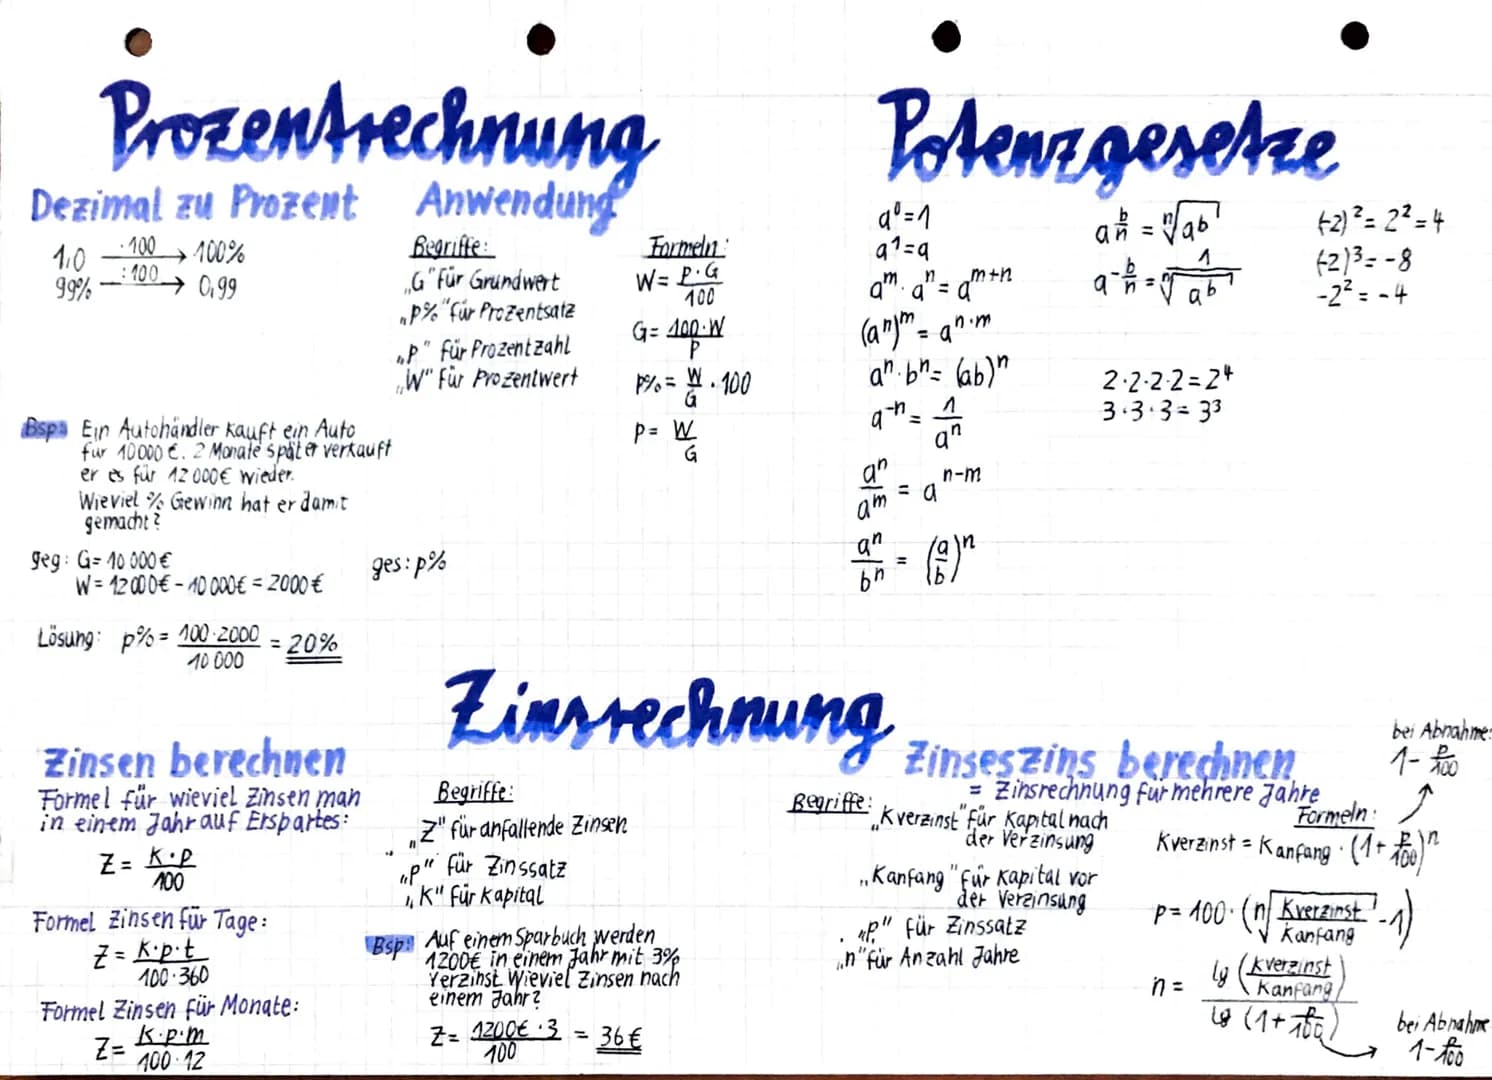 Prozentrechnung
Dezimal zu Prozent
1,0 —·100→ 100%
99% —:100→ 0,99
Anwendung
Begriffe:
„G" für Grundwert
„p%" für Prozentsatz
„p" für Prozentzahl
„W" für Prozentwert
Formeln:
W = p·G/100
G = 100·W/p
p% = W/G · 100
p = W/G
Bsp: Ein Autohändler kauft ein Auto
für 10000€. 2 Monate später verkauft
er es für 12000€ wieder.
Wieviel % Gewinn hat er damit
gemacht?
geg: G = 10 000€ ges: p%
W = 12000€ - 10000€ = 2000€
Lösung: p% = 100·2000/10 000 = 20%
Potenzgesetze
a⁰ = 1
a¹ = a
a^m · a^n = a^(m+n)
(a^n)^m = a^(n·m)
a^n · b^n = (ab)^n
a^(-n) = 1/a^n
a^n/a^m = a^(n-m)
a^n/b^n = (a/b)^n
a^(b/n) = ⁿ√(a^b)
a^(-b/n) = 1/ⁿ√(a^b)
(-2)² = 2² = 4
(-2)³ = -8
-2² = -4
2·2·2·2 = 2⁴
3·3·3 = 3³
Zinsrechnung
Zinsen berechnen
Formel für wieviel Zinsen man
in einem Jahr auf Erspartes:
Z = K·p/100
Formel Zinsen für Tage:
Z = K·p·t/100·360
Formel Zinsen für Monate:
Z = K·p·m/100·12
Begriffe:
„Z" für anfallende Zinsen
„p" für Zinssatz
„K" für Kapital
Bsp: Auf einem Sparbuch werden
1200€ in einem Jahr mit 3%
verzinst. Wieviel Zinsen nach
einem Jahr?
Z = 1200€·3/100 = 36€
Zinseszins berechnen
= Zinsrechnung für mehrere Jahre
Begriffe:
„Kverzinst" für Kapital nach
der Verzinsung
„Kanfang" für Kapital vor
der Verzinsung
„p" für Zinssatz
„n" für Anzahl Jahre
Formeln:
Kverzinst = Kanfang · (1 + p/100)^n
bei Abnahme:
1 - p/100
p = 100 · (ⁿ√(Kverzinst/Kanfang) - 1)
n = lg (Kverzinst/Kanfang) / lg (1 + p/100)
bei Abnahme
1 - p/100